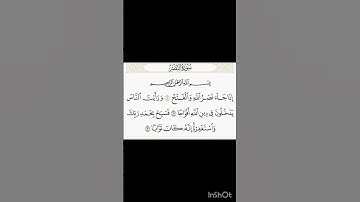 سُورَةُ النَّصْرِ
بِسْمِ اللَّهِ الرَّحْمَٰنِ الرَّحِيمِ
إِذَا جَاءَ نَصْرُ اللَّهِ وَالْفَتْحُ ١ وَرَأَيْتَ النَّاسَ
يَدْخُلُونَ فِي دِينِ اللَّهِ أَفْوَاجًا ٢ فَسَبِّحْ بِحَمْدِ رَبِّكَ
وَاسْتَغْفِرْهُ إِنَّهُ كَانَ تَوَّابًا ٣
InShOt